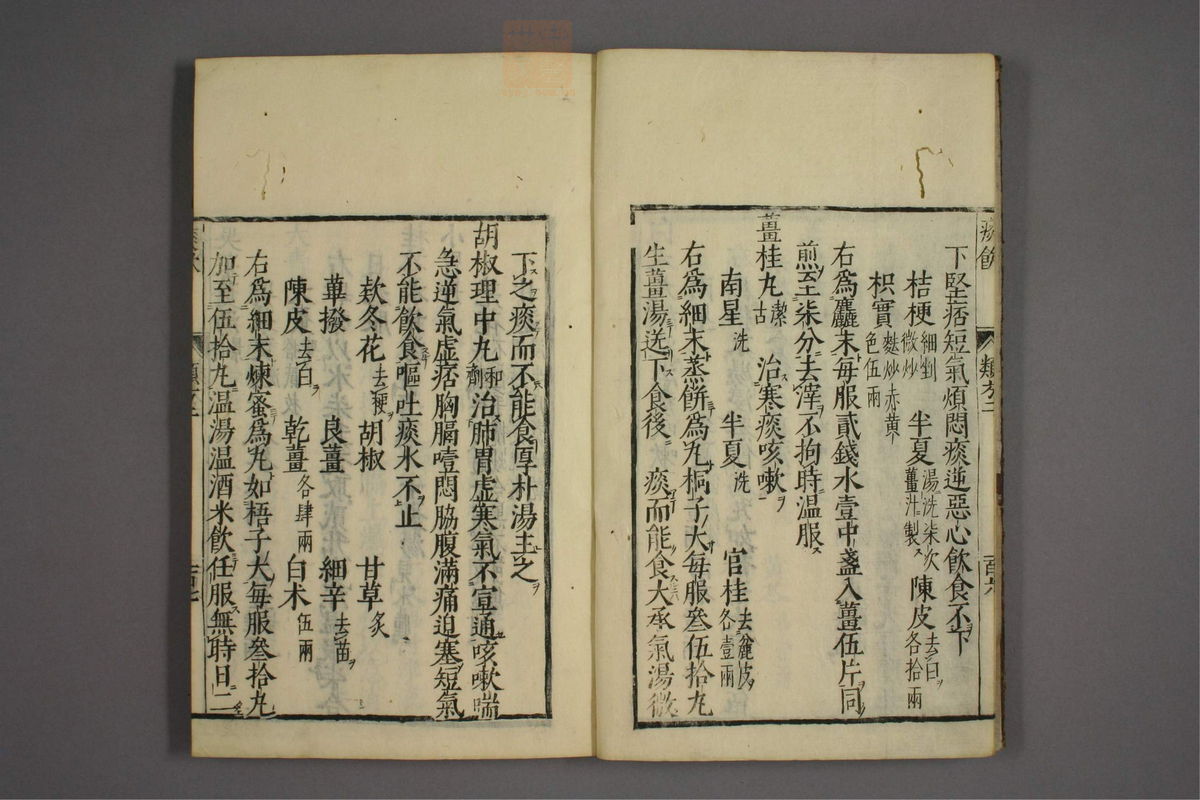 下堅痞短氣煩悶痰逆惡心飲食不下
桔梗細剉微炒 半夏湯洗柒次薑汁製 陳皮去白各拾兩
枳實麩炒赤黄色伍兩
右爲麤末每服貳錢水壹中盞入薑伍片同
煎至柒分去滓不拘時温服
薑桂丸潔古 治寒痰咳嗽
南星洗 半夏洗 官桂去麁皮各壹兩
右爲細末蒸餅爲丸桐子大每服叄伍拾丸
生薑湯送下食後 痰而能食大承氣湯微
下之痰而不能食厚朴湯主之
胡椒理中丸和劑 治肺胃虚寒氣不宣通咳嗽喘
急逆氣虚痞胸膈噎悶脇腹滿痛迫塞短氣
不能飲食嘔吐痰水不止
欵冬花去梗 胡椒 甘草炙
蓽撥 良薑 細辛去苗
陳皮去白 乾薑各肆兩 白术伍兩
右爲細末煉蜜爲丸如梧子大每服叄拾丸
加至伍拾丸温湯温酒米飲任服無時日二